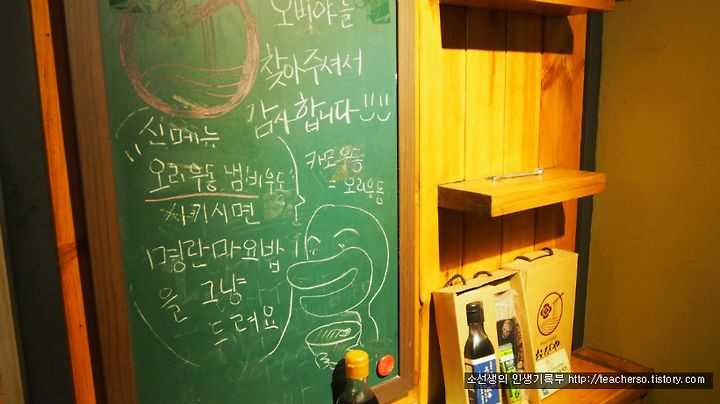 오비야를
찾아주셔서
감사합니다
신메뉴
오리우동, 냄비우동
시키시면
명란마요밥
을 그냥
드려요
카모우동
= 오리우동
おびや
소선생의 인생기록부 http://teacherso.tistory.com